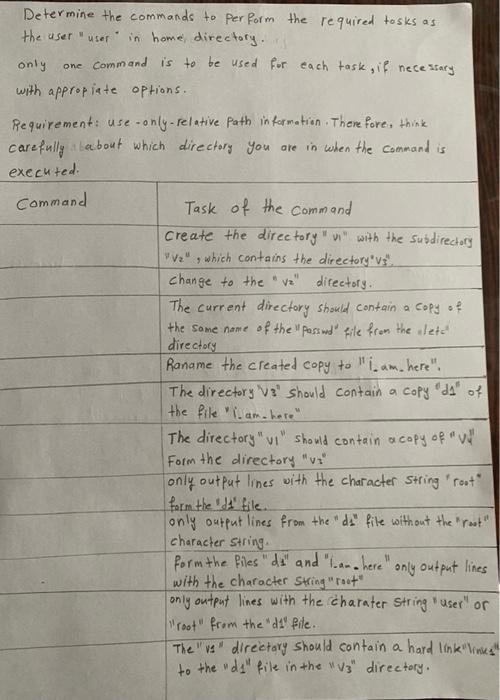 Determine the commands to perform the required tasks as
the user "user" in home directory.
only one command is to be used for each task, if necessary
with appropiate options.
Requirement: use-only-relative path information. Therefore, think
carefully about which directory you are in when the command is
executed.
Command
Task of the command
Create the directory "v1" with the subdirectory
"v2", which contains the directory "v3".
change to the "v2" directory.
The current directory should contain a copy of
the same name of the "passwd" file from the
directory
Raname the created copy to "i_am_here".
The directory "v3" should contain a copy "d1" of
the file "i_am_here"
The directory "v1" should contain a copy of
Form the directory "v2"
only output lines with the character string "root"
form the "d1" file.
only output lines from the "d1" file without the "root"
character string.
form the files "d1" and "i_am_here" only output lines
with the character string "root"
only output lines with the charater string "user" or
"root" from the "d1" file.
The "v1" directory should contain a hard link
to the "d1" file in the "v3" directory.